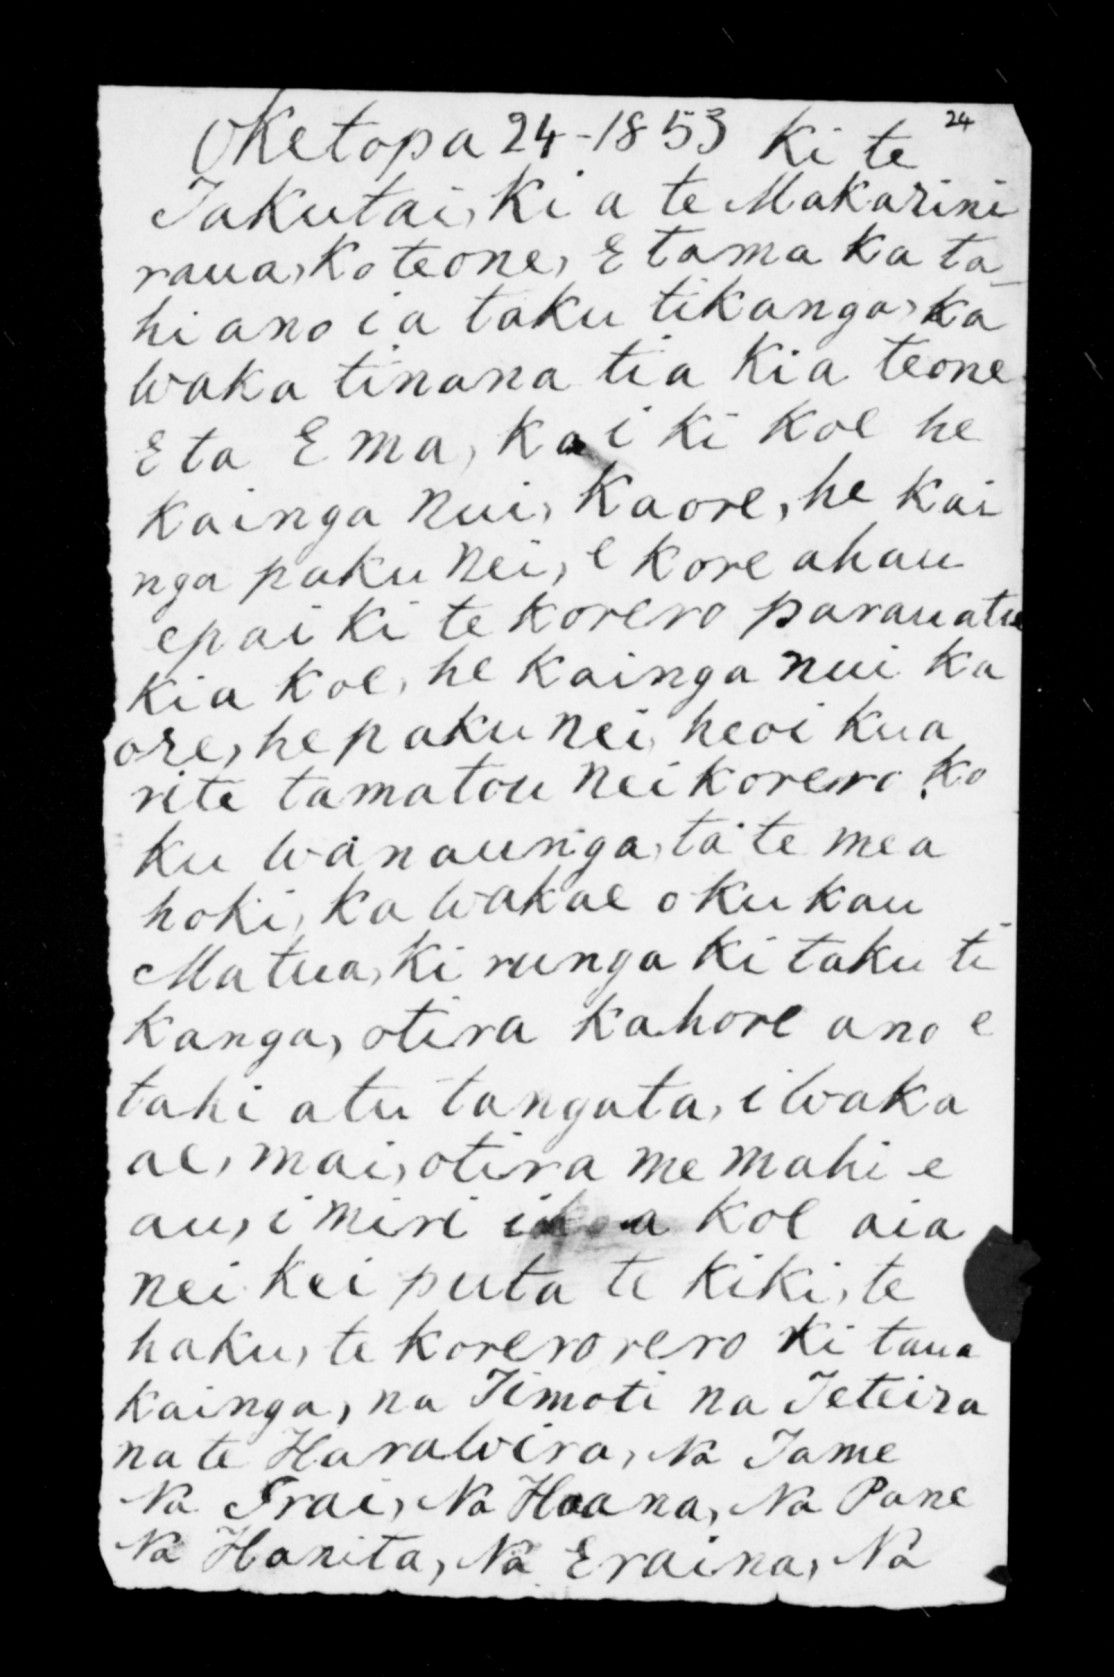 24
Oketopa 24-1853 Ki te
Takutai, Ki a te Makarini
raua, Ko teone, E tama ka ta
hi ano i a taku tikanga, ka
waka tinana tia kia teone
E ta E ma, ka i ki koe he
kainga nui, kaore, he kai
nga paku nei, e kore ahau
e pai ki te korero parau atu
kia koe, he kainga nui ka
ore, he paku nei, heoi kua
rite ta matou nei korero ko
ku wanaunga, ta te mea
hoki, ka wakae oku kau
Matua, ki runga ki taku ti
kanga, otira kahore ano e
tahi atu tangata, i waka
ae, mai, otira me mahi e
au, i miri koe aia
nei kei puta te kiki, te
haku, te korerorero ki taua
kainga, na Timoti na Teteira
na te Harawira, Na Tame
Na Irai, Na Hoana, Na Pane
Na Hanita, Na Eraina, Na